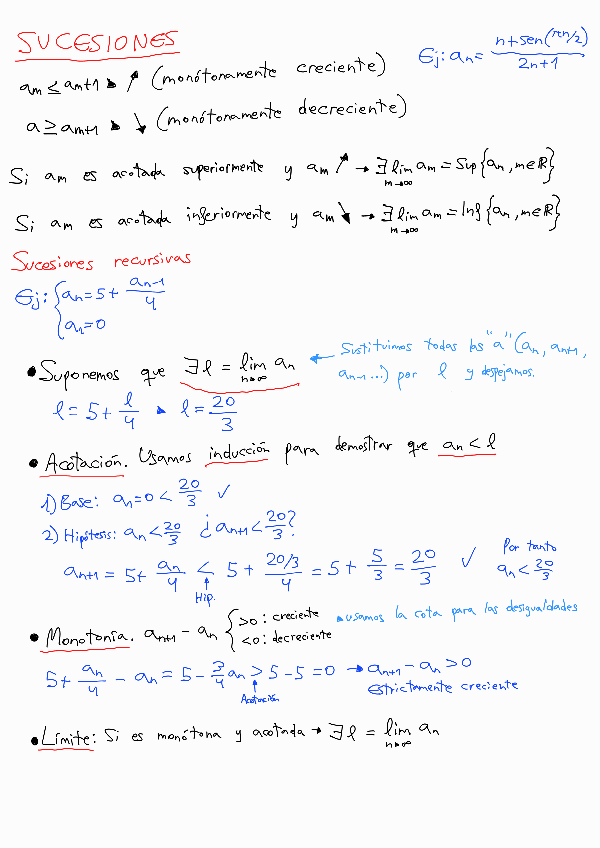 SUCESIONES
Ej: an = (n+sen(πn/2))/(2n+1)
am ≤ am+1 ▸ ↗ (monótonamente creciente)
a ≥ am+1 ▸ ↘ (monótonamente decreciente)
Si am es acotada superiormente y am ↗ → ∃ lim m→∞ am = Sup{an, m∈ℝ}
Si am es acotada inferiormente y am ↘ → ∃ lim m→∞ am = Inf{an, m∈ℝ}
Sucesiones recursivas
Ej: { an = 5 + an-1/4
an = 0
• Suponemos que ∃ l = lim n→∞ an ← Sustituimos todas las "a" (an, an+1,
an-1...) por l y despejamos.
l = 5 + l/4 ▸ l = 20/3
• Acotación. Usamos inducción para demostrar que an < l
1) Base: an = 0 < 20/3 ✓
2) Hipótesis: an < 20/3 ¿an+1 < 20/3?
an+1 = 5 + an/4 < 5 + (20/3)/4 = 5 + 5/3 = 20/3 ✓ Por tanto
an < 20/3
↑ Hip.
• Monotonía. an+1 - an { >0: creciente ▸ usamos la cota para las desigualdades
<0: decreciente
5 + an/4 - an = 5 - 3/4 an > 5 - 5 = 0 → an+1 - an > 0
↑ Acotación
estrictamente creciente
• Límite: Si es monótona y acotada → ∃ l = lim n→∞ an